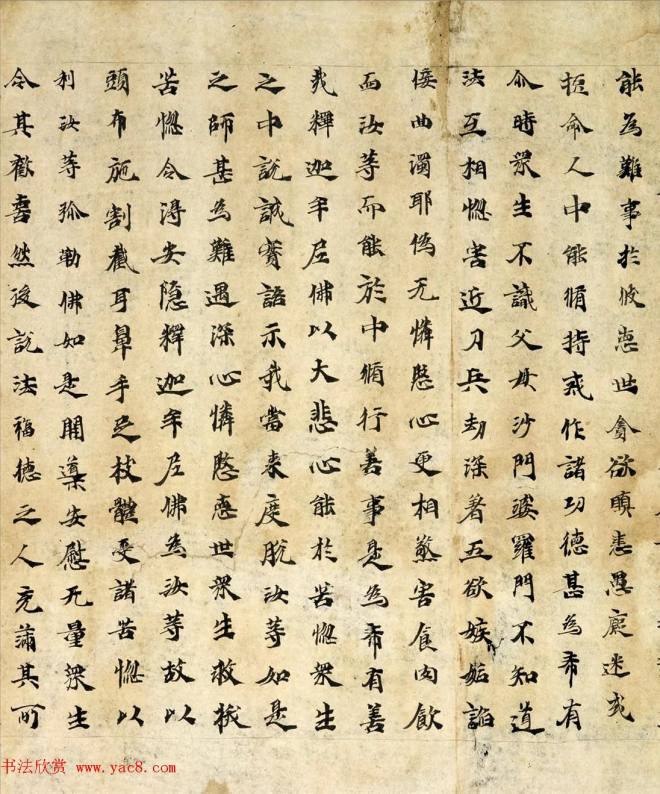 能為難事於彼惡世貪欲瞋恚愚癡迷或
短命人中能脩持戒作諸功德甚為希有
尒時眾生不識父母沙門婆羅門不知道
法互相惱害近刀兵劫深著五欲嫉妬諂
佞曲濁耶偽无憐愍心更相煞害食肉飲
血汝等而能於中脩行善事是為希有善
哉釋迦牟尼佛以大悲心能於苦惱眾生
之中說誠實語示我當來度脫汝等如是
之師甚為難遇深心憐愍惡世眾生救拔
苦惱令得安隱釋迦牟尼佛為汝等故以
頭布施割截耳鼻手足枝體受諸苦惱以
利汝等弥勒佛如是開導安慰无量眾生
令其歡喜然後說法福德之人充滿其所
书法欣赏 www.yac8.com